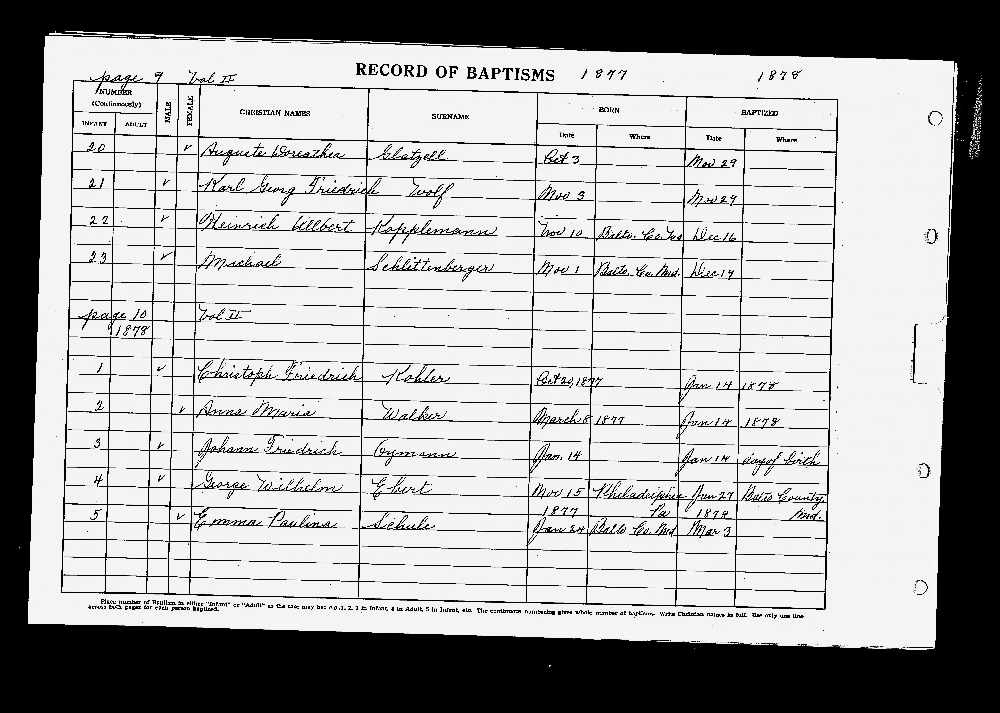 page 9 Vol II RECORD OF BAPTISMS 1877 1878
NUMBER
(Continuously) MALE FEMALE CHRISTIAN NAMES SURNAME BORN BAPTIZED
INFANT ADULT Date Where Date Where
20 ✓ Auguste Dorothea Glatzell Oct 3 Nov 29
21 ✓ Karl Georg Friedrich Wolf Nov 3 Nov 29
22 ✓ Heinrich Albert Kopplemann Nov 10 Balto. Co. Dec 16
23 ✓ Michael Schlittenberger Nov 1 Balto. Co. Md. Dec 14
page 10 Vol II
1878
1 ✓ Christoph Friedrich Kohler Oct 20, 1877 Jan 14 1878
2 ✓ Anna Maria Walker March 8 1877 Jan 14 1878
3 ✓ Johann Friedrich Oymann Jan. 14 Jan 14 day of birth
4 ✓ George Wilhelm Ebert Nov 15 Philadelphia Jan 27 Balto County,
1877 Pa 1878 Md.
5 ✓ Emma Paulina Schule Jan 24 Balto Co. Md Mar 3
Place number of Baptism in either "Infant" or "Adult" as the case may be: e.g., 1, 2, 3 in Infant, 4 in Adult, 5 in Infant, etc. The continuous numbering gives whole number of baptisms. Write Christian names in full. Use only one line
across both pages for each person baptized.